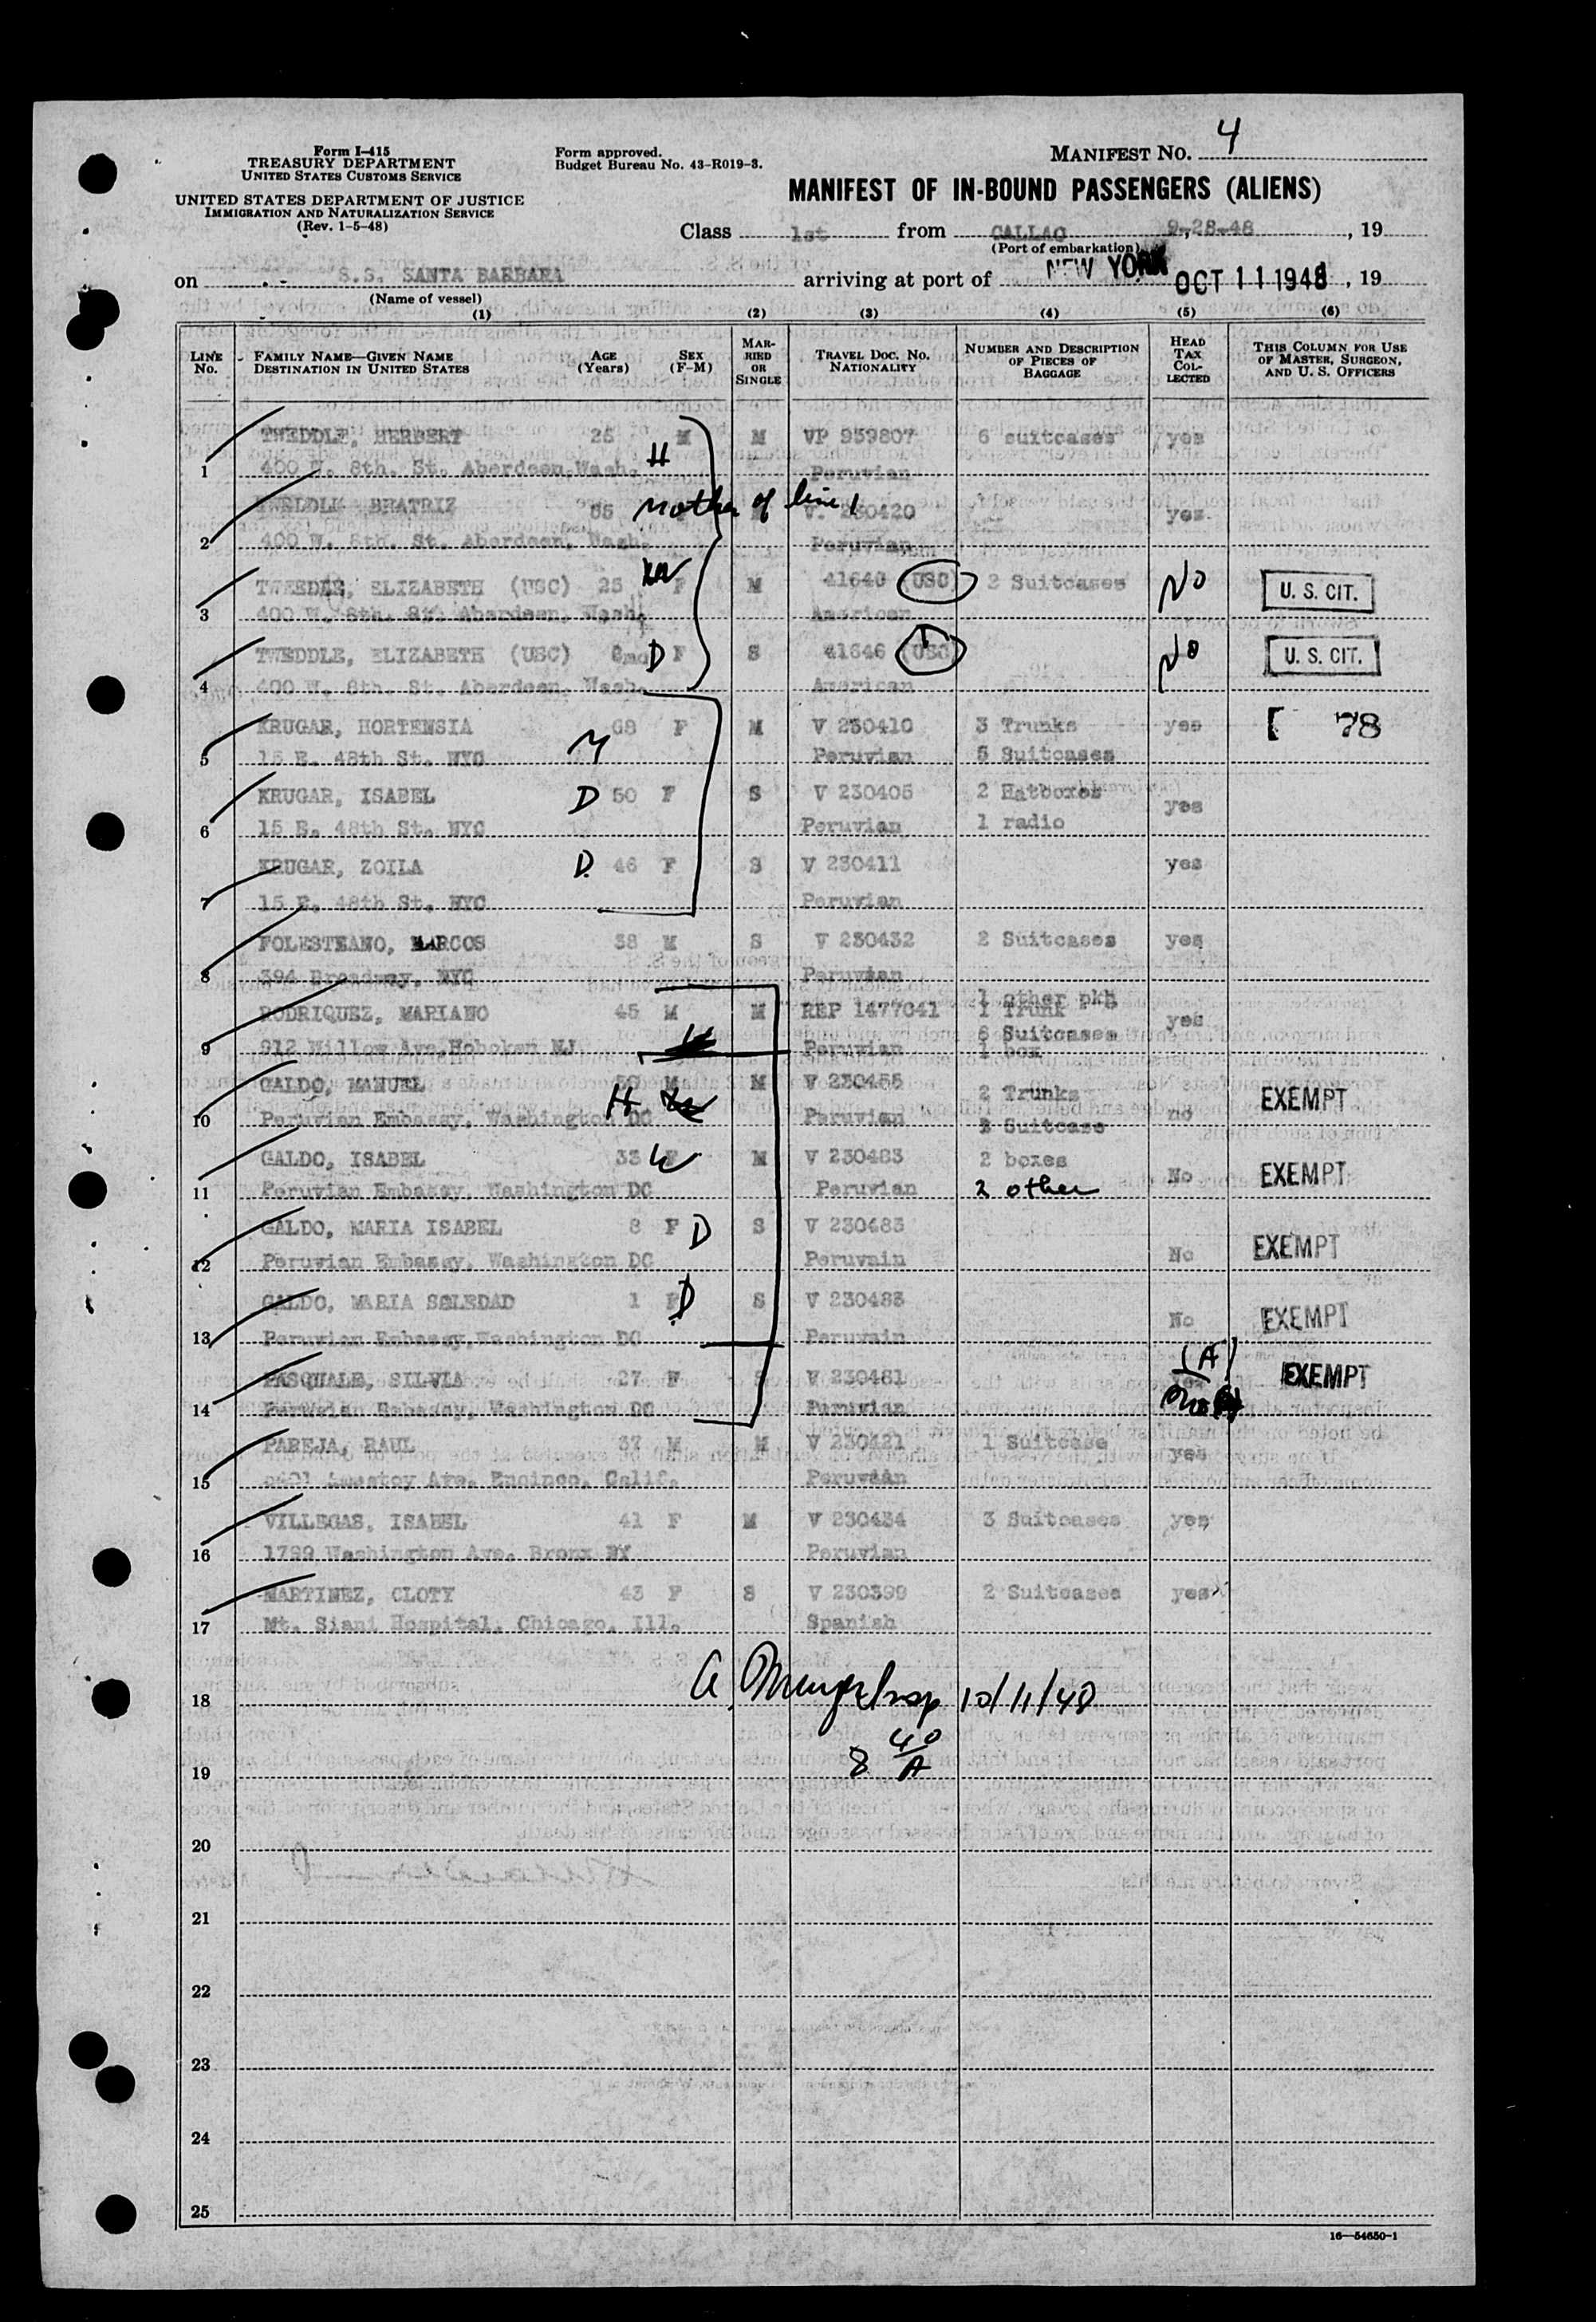 4
Form I-415
TREASURY DEPARTMENT
UNITED STATES CUSTOMS SERVICE
Form approved.
Budget Bureau No. 43-R019-3.
MANIFEST NO.
UNITED STATES DEPARTMENT OF JUSTICE
IMMIGRATION AND NATURALIZATION SERVICE
(Rev. 1-5-48)
MANIFEST OF IN-BOUND PASSENGERS (ALIENS)
Class 1st from CALLAO 9-28-48, 19
(Port of embarkation)
on S.S. SANTA BARBARA arriving at port of NEW YORK OCT 11 1948, 19
(Name of vessel)
(1) (2) (3) (4) (5) (6)
LINE No. FAMILY NAME—GIVEN NAME DESTINATION IN UNITED STATES AGE (Years) SEX (F-M) MARRIED OR SINGLE TRAVEL DOC. NO. NATIONALITY NUMBER AND DESCRIPTION OF PIECES OF BAGGAGE HEAD TAX COLLECTED THIS COLUMN FOR USE OF MASTER, SURGEON, AND U. S. OFFICERS
TWEDDLE, HERBERT 25 M M VP 959807 6 suitcases yes
1 400 W. 8th. St. Aberdeen, Wash. H Peruvian
TWEDDLE BEATRIZ 55 Mother of line 1 V. 230420 yes
2 400 W. 8th. St. Aberdeen, Wash. Peruvian
TWEDDLE, ELIZABETH (USC) 25 W F M 41640 USC 2 Suitcases No U. S. CIT.
3 400 W. 8th. St. Aberdeen, Wash. American
TWEDDLE, ELIZABETH (USC) D F S 41646 USC No U. S. CIT.
4 400 W. 8th. St. Aberdeen, Wash. American
KRUGAR, HORTENSIA 68 F M V 230410 3 Trunks yes [ 78
5 15 E. 48th St. NYC M Peruvian 5 Suitcases
KRUGAR, ISABEL D 50 F S V 230405 2 Hatboxes yes
6 15 E. 48th St. NYC Peruvian 1 radio
KRUGAR, ZOILA D. 46 F S V 230411 yes
7 15 E. 48th St. NYC Peruvian
FOLESTEANO, MARCOS 38 M S V 230432 2 Suitcases yes
8 394 Broadway, NYC Peruvian
1 other pkg
RODRIQUEZ, MARIANO 45 M M REP 1477041 1 Trunk yes
6 Suitcases
9 912 Willow Ave, Hoboken NJ Peruvian 1 box
GALDO, MANUEL M M V 230455 2 Trunks EXEMPT
10 Peruvian Embassy, Washington DC H Peruvian Suitcase no
GALDO, ISABEL 33 W M V 230483 2 boxes
11 Peruvian Embassy, Washington DC Peruvian 2 other No EXEMPT
GALDO, MARIA ISABEL 8 F D S V 230483
12 Peruvian Embassy, Washington DC Peruvain No EXEMPT
GALDO, MARIA SOLEDAD 1 F D S V 230483
13 Peruvian Embassy, Washington DC Peruvain No EXEMPT
PASQUALE, SILVIA 27 F S V 230481 (A) EXEMPT
14 Peruvian Embassy, Washington DC Peruvian
PAREJA, RAUL 37 M M V 230421 1 Suitcase yes
15 Amestoy Ave. Encinco, Calif. Peruvian
VILLEGAS, ISABEL 41 F M V 230434 3 Suitcases yes
16 1799 Washington Ave. Bronx NY Peruvian
MARTINEZ, CLOTY 43 F S V 230399 2 Suitcases yes
17 Mt. Siani Hospital, Chicago, Ill. Spanish
18 Insp 10/11/48
19 8 40/A
20
21
22
23
24
25
16—54650-1